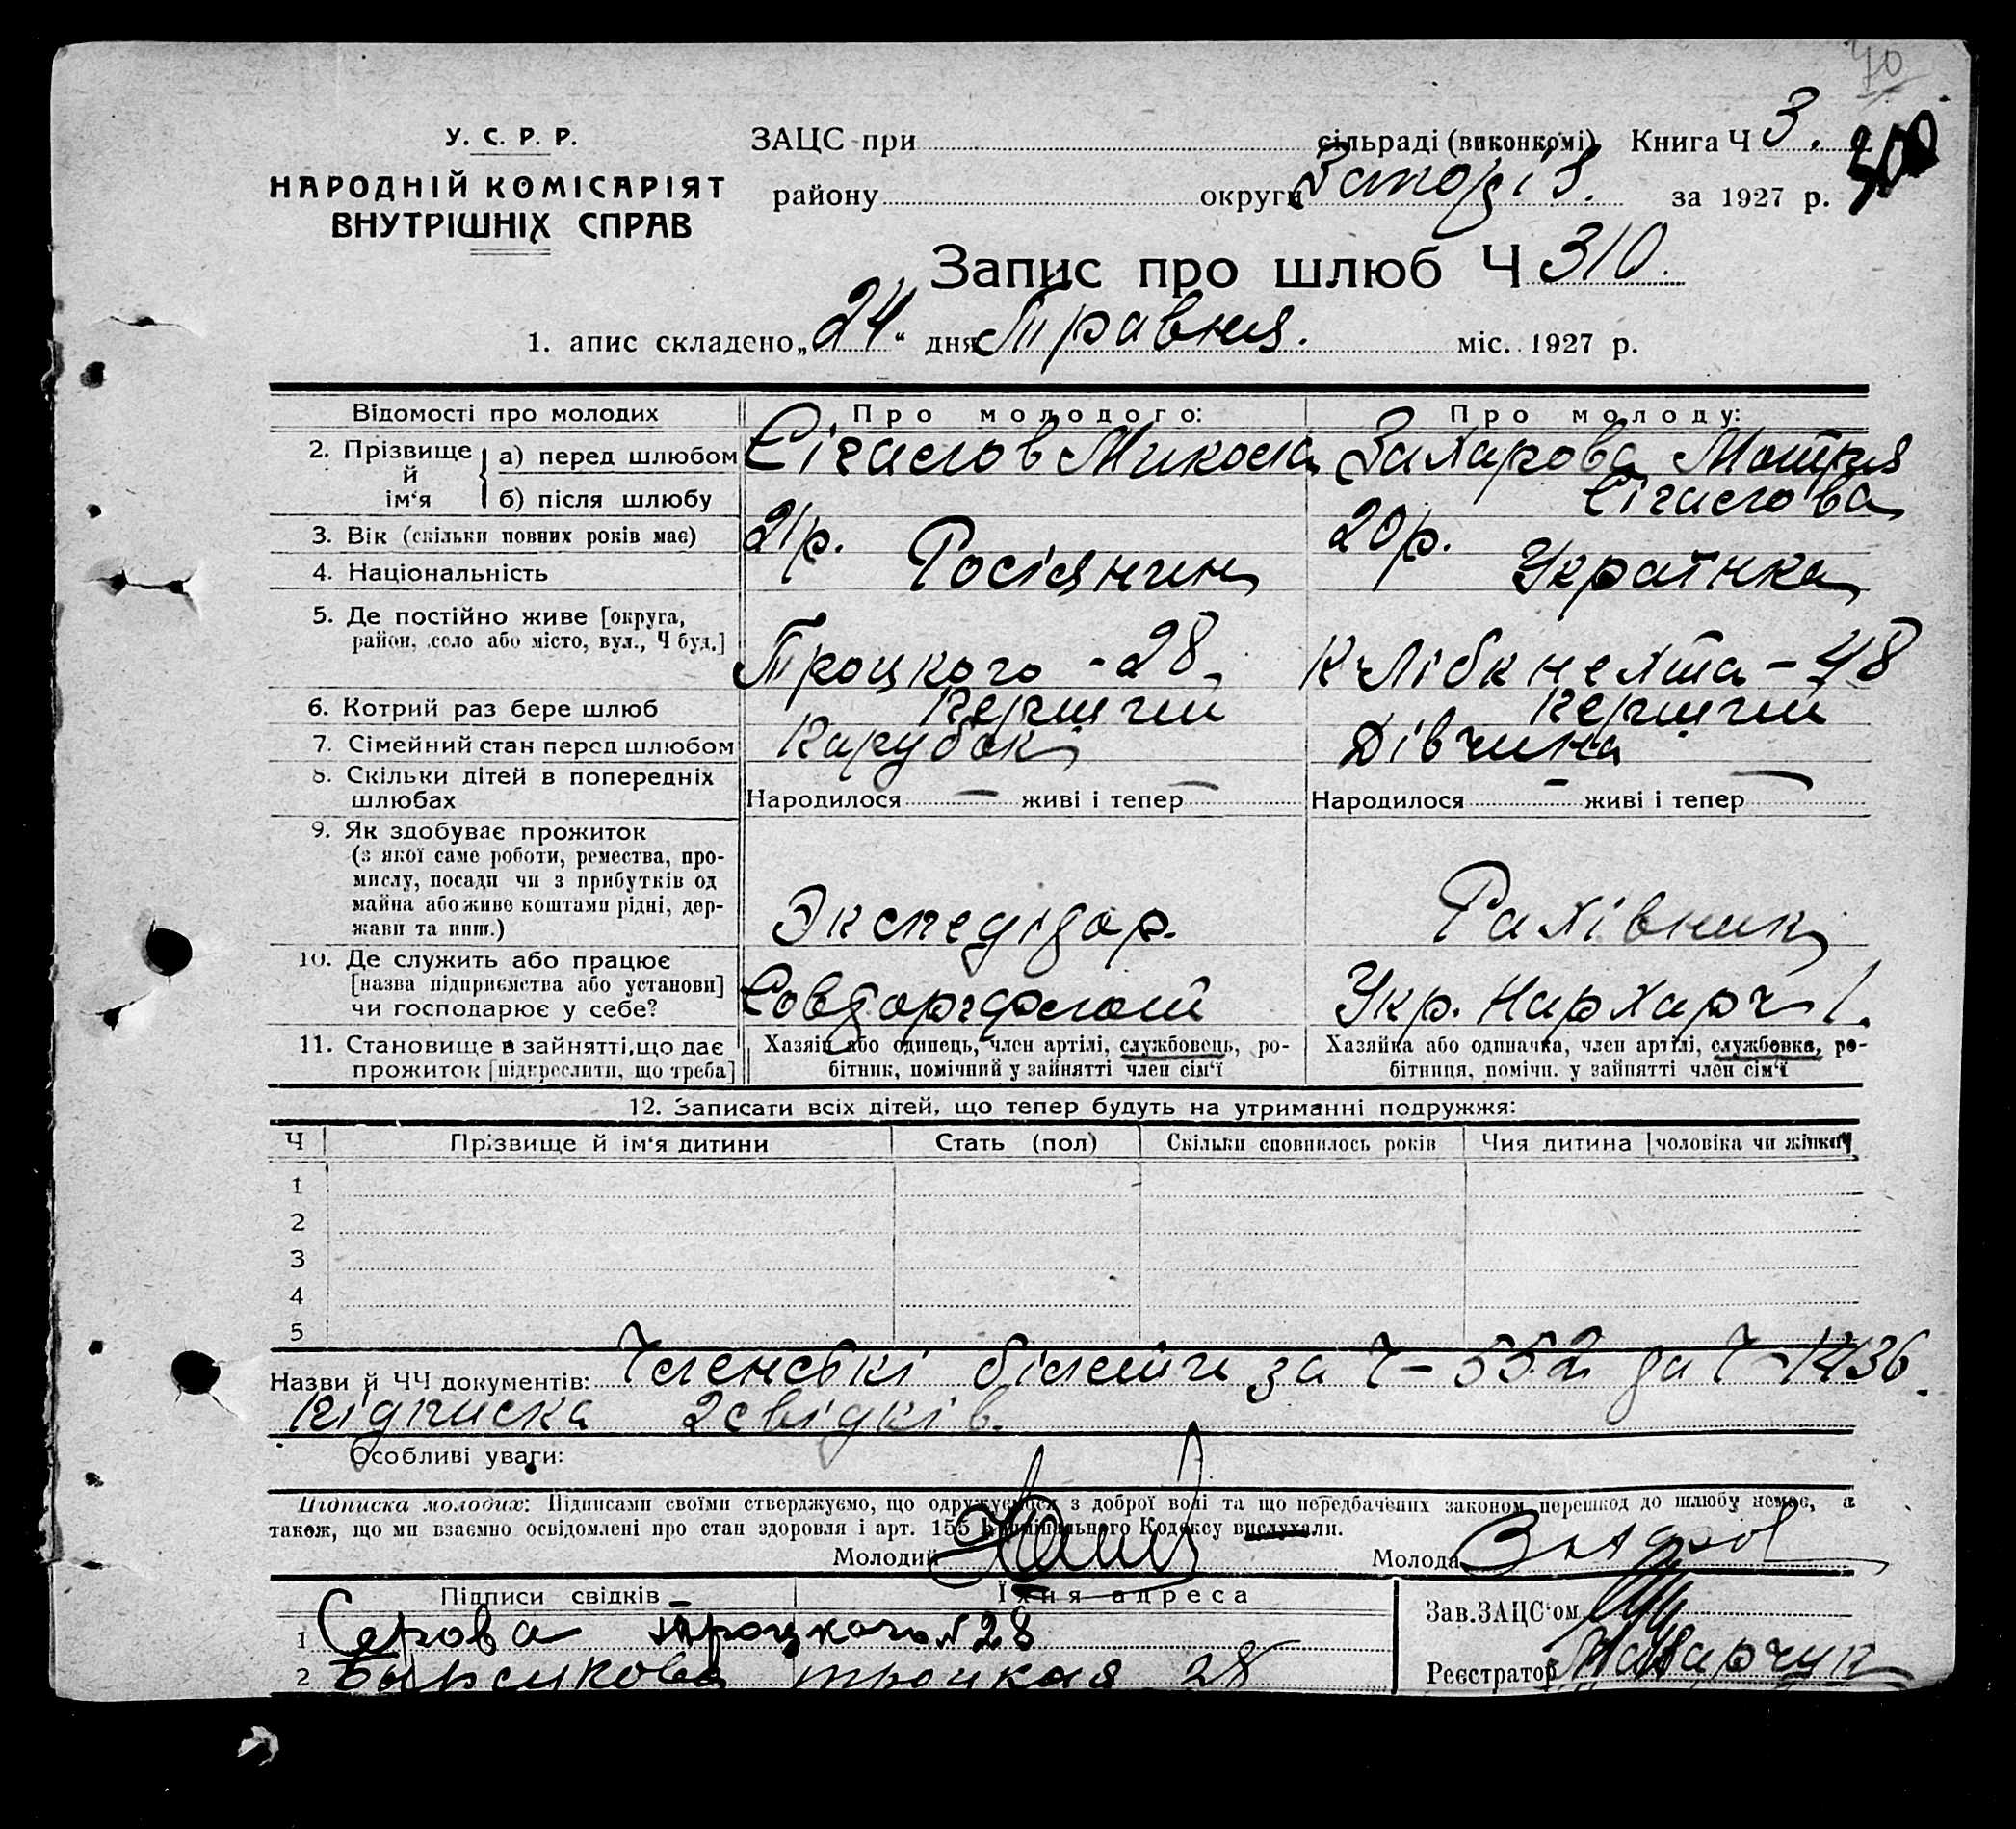 70
У. С. Р. Р.
НАРОДНІЙ КОМІСАРІЯТ
ВНУТРІШНІХ СПРАВ
ЗАЦС при сільраді (виконкомі) Книга Ч 3.
району округи Запоріз. за 1927 р.
Запис про шлюб Ч 310.
1. апис складено „24“ дня Травня. міс. 1927 р.
Відомості про молодих Про молодого: Про молоду:
2. Прізвище й ім‘я
а) перед шлюбом Сігаєлов Микола Захарова Мотря
б) після шлюбу Сігаєлова
3. Вік (скільки повних років має) 21 р. 20 р.
4. Національність Росіянин Українка
5. Де постійно живе [округа,
район, село або місто, вул., Ч буд.] Троцкого - 28 К Лібкнехта - 48
6. Котрий раз бере шлюб Перший Перший
7. Сімейний стан перед шлюбом Парубок Дівчина
8. Скільки дітей в попередніх
шлюбах Народилося — живі і тепер — Народилося — живі і тепер —
9. Як здобуває прожиток
(з якої саме роботи, ремества, про-
мислу, посади чи з прибутків од
майна або живе коштами рідні, дер-
жави та инш.) Экспедітор. Рахівник
10. Де служить або працює
[назва підприємства або установи]
чи господарює у себе? Совторгфлот Укр. Нархарч 1.
11. Становище в зайнятті, що дає
прожиток [підкреслити, що треба]
Хазяїн або одинець, член артілі, службовець, ро-
бітник, помічний у зайнятті член сім‘ї
Хазяйка або одиначка, член артілі, службовка, ро-
бітниця, помічн. у зайнятті член сім‘ї
12. Записати всіх дітей, що тепер будуть на утриманні подружжя:
Ч Прізвище й ім‘я дитини Стать (пол) Скільки сповнилось років Чия дитина [чоловіка чи жінки]
1
2
3
4
5
Назви й ЧЧ документів: Членські білети за Ч - 552 да Ч - 1436.
Підписка 2 свідків.
Особливі уваги:
Підписка молодих: Підписами своїми стверджуємо, що одружуємося з доброї волі та що передбачених законом перешкод до шлюбу немає, а
також, що ми взаємно освідомлені про стан здоровля і арт. 155 Кримінального Кодексу вислухали.
Молодий Молода
Підписи свідків Їхня адреса
Зав. ЗАЦС‘ом
1 Серова Троцкого № 28
Реєстратор
2 троцкая 28